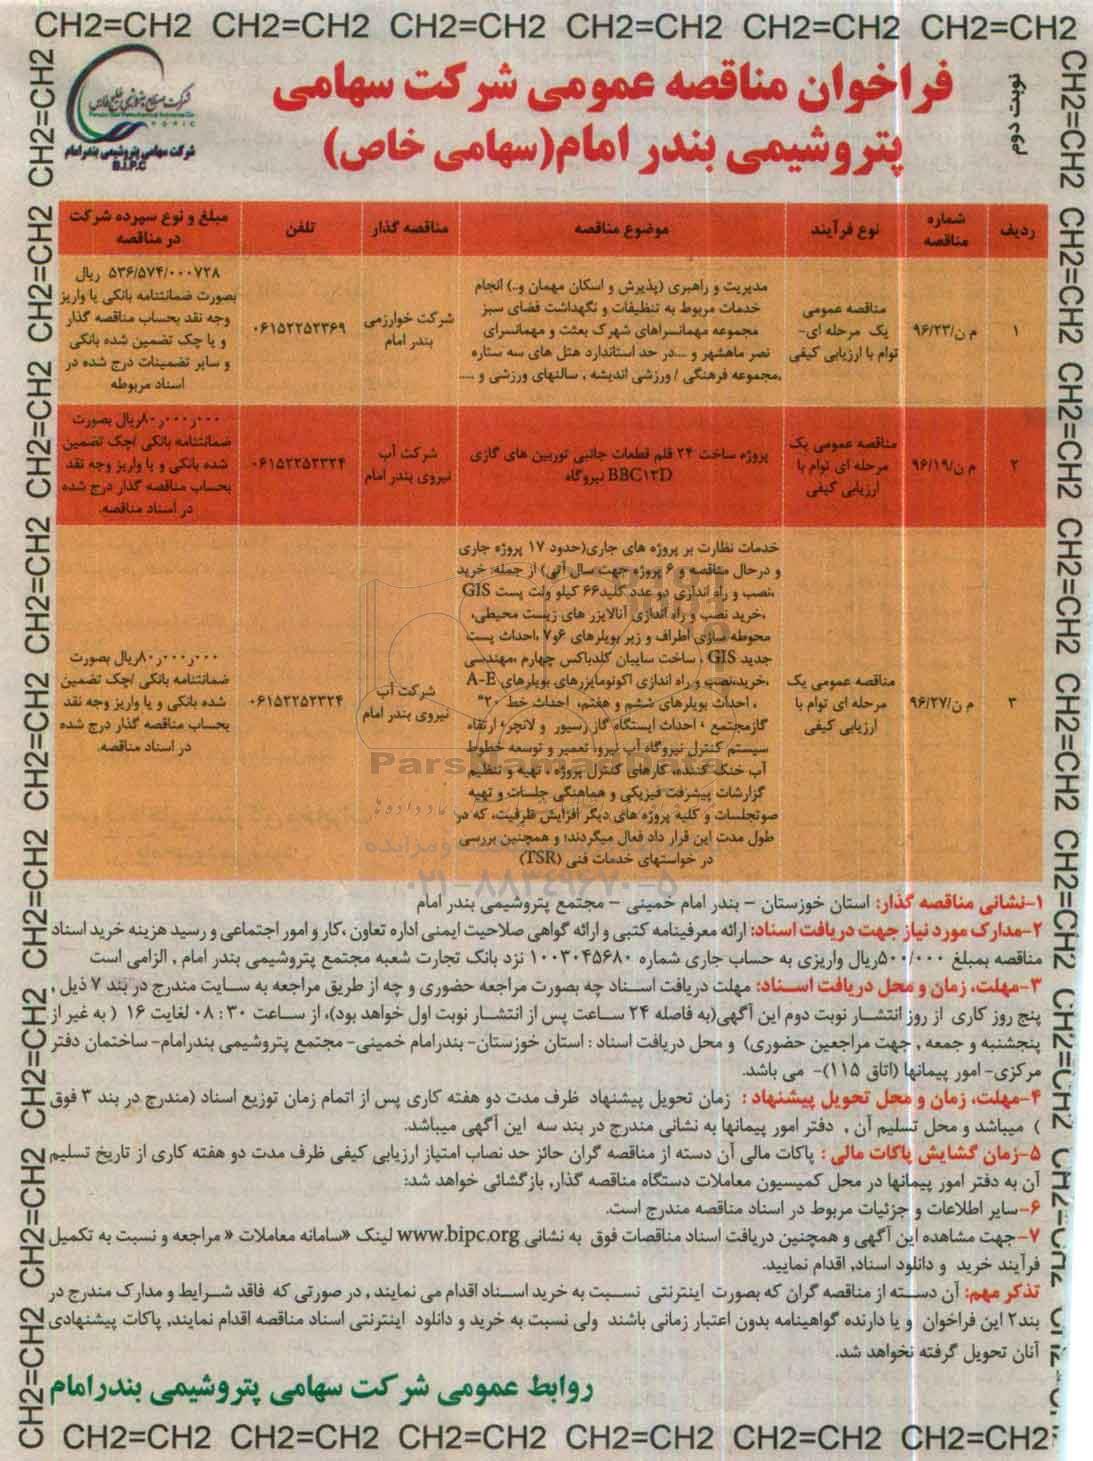 CH2=CH2 CH2=CH2 CH2=CH2 CH2=CH2 CH2=CH2 CH2=CH2
نوبت دوم
فراخوان مناقصه عمومی شرکت سهامی
پتروشیمی بندر امام(سهامی خاص)
شرکت صنایع پتروشیمی خلیج فارس
شرکت سهامی پتروشیمی بندر امام
B.I.P.C
ردیف
شماره
مناقصه
نوع فرآیند
موضوع مناقصه
مناقصه گذار
تلفن
مبلغ و نوع سپرده شرکت
در مناقصه
۱
م ن/۹۶/۲۳
مناقصه عمومی
یک مرحله ای-
توام با ارزیابی کیفی
مدیریت و راهبری (پذیرش و اسکان مهمان و..) انجام
خدمات مربوط به تنظیفات و نگهداشت فضای سبز
مجموعه مهمانسراهای شهرک بعثت و مهمانسرای
نصر ماهشهر و ...در حد استاندارد هتل های سه ستاره
,مجموعه فرهنگی / ورزشی اندیشه , سالنهای ورزشی و ....
شرکت خوارزمی
بندر امام
۰۶۱۵۲۲۵۲۳۶۹
۵۳۶/۵۷۴/۰۰۰۷۲۸ ریال
بصورت ضمانتنامه بانکی یا واریز
وجه نقد بحساب مناقصه گذار
و یا چک تضمین شده بانکی
و سایر تضمینات درج شده در
اسناد مربوطه
۲
م ن/۹۶/۱۹
مناقصه عمومی یک
مرحله ای توام با
ارزیابی کیفی
پروژه ساخت ۲۴ قلم قطعات جانبی توربین های گازی
BBC۱۳D نیروگاه
شرکت آب
نیروی بندر امام
۰۶۱۵۲۲۵۲۳۲۴
۸۰ر۰۰۰ر۰۰۰ریال بصورت
ضمانتنامه بانکی /چک تضمین
شده بانکی و یا واریز وجه نقد
بحساب مناقصه گذار درج شده
در اسناد مناقصه.
۳
م ن/۹۶/۲۷
مناقصه عمومی یک
مرحله ای توام با
ارزیابی کیفی
خدمات نظارت بر پروژه های جاری(حدود ۱۷ پروژه جاری
و درحال مناقصه و ۶ پروژه جهت سال آتی) از جمله: خرید
،نصب و راه اندازی دو عدد کلید۶۶ کیلو ولت پست GIS
،خرید نصب و راه اندازی آنالایزر های زیست محیطی،
محوطه سازی اطراف و زیر بویلرهای ۶و۷ ،احداث پست
جدید GIS ، ساخت سایبان کلدباکس چهارم ،مهندسی
،خرید،نصب و راه اندازی اکونومایزرهای بویلرهای A-E
، احداث بویلرهای ششم و هفتم، احداث خط ۲۰"
گازمجتمع ، احداث ایستگاه گاز رسیور و لانچر، ارتقاء
سیستم کنترل نیروگاه آب نیرو، تعمیر و توسعه خطوط
آب خنک کننده، کارهای کنترل پروژه ، تهیه و تنظیم
گزارشات پیشرفت فیزیکی و هماهنگی جلسات و تهیه
صوتجلسات و کلیه پروژه های دیگر افزایش ظرفیت، که در
طول مدت این قرار داد فعال میگردند؛ و همچنین بررسی
در خواستهای خدمات فنی (TSR)
شرکت آب
نیروی بندر امام
۰۶۱۵۲۲۵۲۳۲۴
۸۰ر۰۰۰ر۰۰۰ریال بصورت
ضمانتنامه بانکی /چک تضمین
شده بانکی و یا واریز وجه نقد
بحساب مناقصه گذار درج شده
در اسناد مناقصه.
ParsNamadData
۰۲۱-۸۸۳۴۹۶۷۰-۵
۱-نشانی مناقصه گذار: استان خوزستان – بندر امام خمینی – مجتمع پتروشیمی بندر امام
۲-مدارک مورد نیاز جهت دریافت اسناد: ارائه معرفینامه کتبی و ارائه گواهی صلاحیت ایمنی اداره تعاون ،کار و امور اجتماعی و رسید هزینه خرید اسناد
مناقصه بمبلغ ۵۰۰/۰۰۰ریال واریزی به حساب جاری شماره ۱۰۰۳۰۴۵۶۸۰ نزد بانک تجارت شعبه مجتمع پتروشیمی بندر امام , الزامی است
۳-مهلت، زمان و محل دریافت اسناد: مهلت دریافت اسناد چه بصورت مراجعه حضوری و چه از طریق مراجعه به سایت مندرج در بند ۷ ذیل ,
پنج روز کاری از روز انتشار نوبت دوم این آگهی(به فاصله ۲۴ ساعت پس از انتشار نوبت اول خواهد بود)، از ساعت ۳۰ : ۰۸ لغایت ۱۶ ( به غیر از
پنجشنبه و جمعه , جهت مراجعین حضوری) و محل دریافت اسناد : استان خوزستان- بندرامام خمینی- مجتمع پتروشیمی بندرامام- ساختمان دفتر
مرکزی- امور پیمانها (اتاق ۱۱۵)- می باشد.
۴-مهلت، زمان و محل تحویل پیشنهاد : زمان تحویل پیشنهاد ظرف مدت دو هفته کاری پس از اتمام زمان توزیع اسناد (مندرج در بند ۳ فوق
) میباشد و محل تسلیم آن , دفتر امور پیمانها به نشانی مندرج در بند سه این آگهی میباشد.
۵-زمان گشایش پاکات مالی : پاکات مالی آن دسته از مناقصه گران حائز حد نصاب امتیاز ارزیابی کیفی ظرف مدت دو هفته کاری از تاریخ تسلیم
آن به دفتر امور پیمانها در محل کمیسیون معاملات دستگاه مناقصه گذار, بازگشائی خواهد شد:
۶-سایر اطلاعات و جزئیات مربوط در اسناد مناقصه مندرج است.
۷-جهت مشاهده این آگهی و همچنین دریافت اسناد مناقصات فوق به نشانی www.bipc.org لینک «سامانه معاملات « مراجعه و نسبت به تکمیل
فرآیند خرید و دانلود اسناد, اقدام نمایید.
تذکر مهم: آن دسته از مناقصه گران که بصورت اینترنتی نسبت به خرید اسناد اقدام می نمایند , در صورتی که فاقد شرایط و مدارک مندرج در
بند۲ این فراخوان و یا دارنده گواهینامه بدون اعتبار زمانی باشند ولی نسبت به خرید و دانلود اینترنتی اسناد مناقصه اقدام نمایند, پاکات پیشنهادی
آنان تحویل گرفته نخواهد شد.
روابط عمومی شرکت سهامی پتروشیمی بندرامام
CH2=CH2 CH2=CH2 CH2=CH2 CH2=CH2 CH2=CH2 CH2=CH2